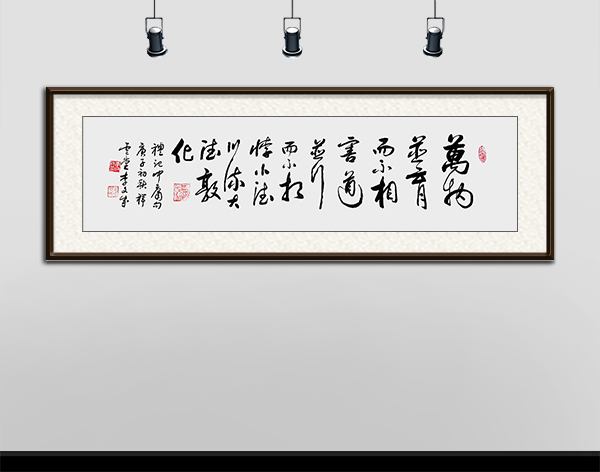 萬物
並育
而不相
害道
並行
而不相
悖小德
川流大
德敦
化
禮記中庸句
庚子初秋